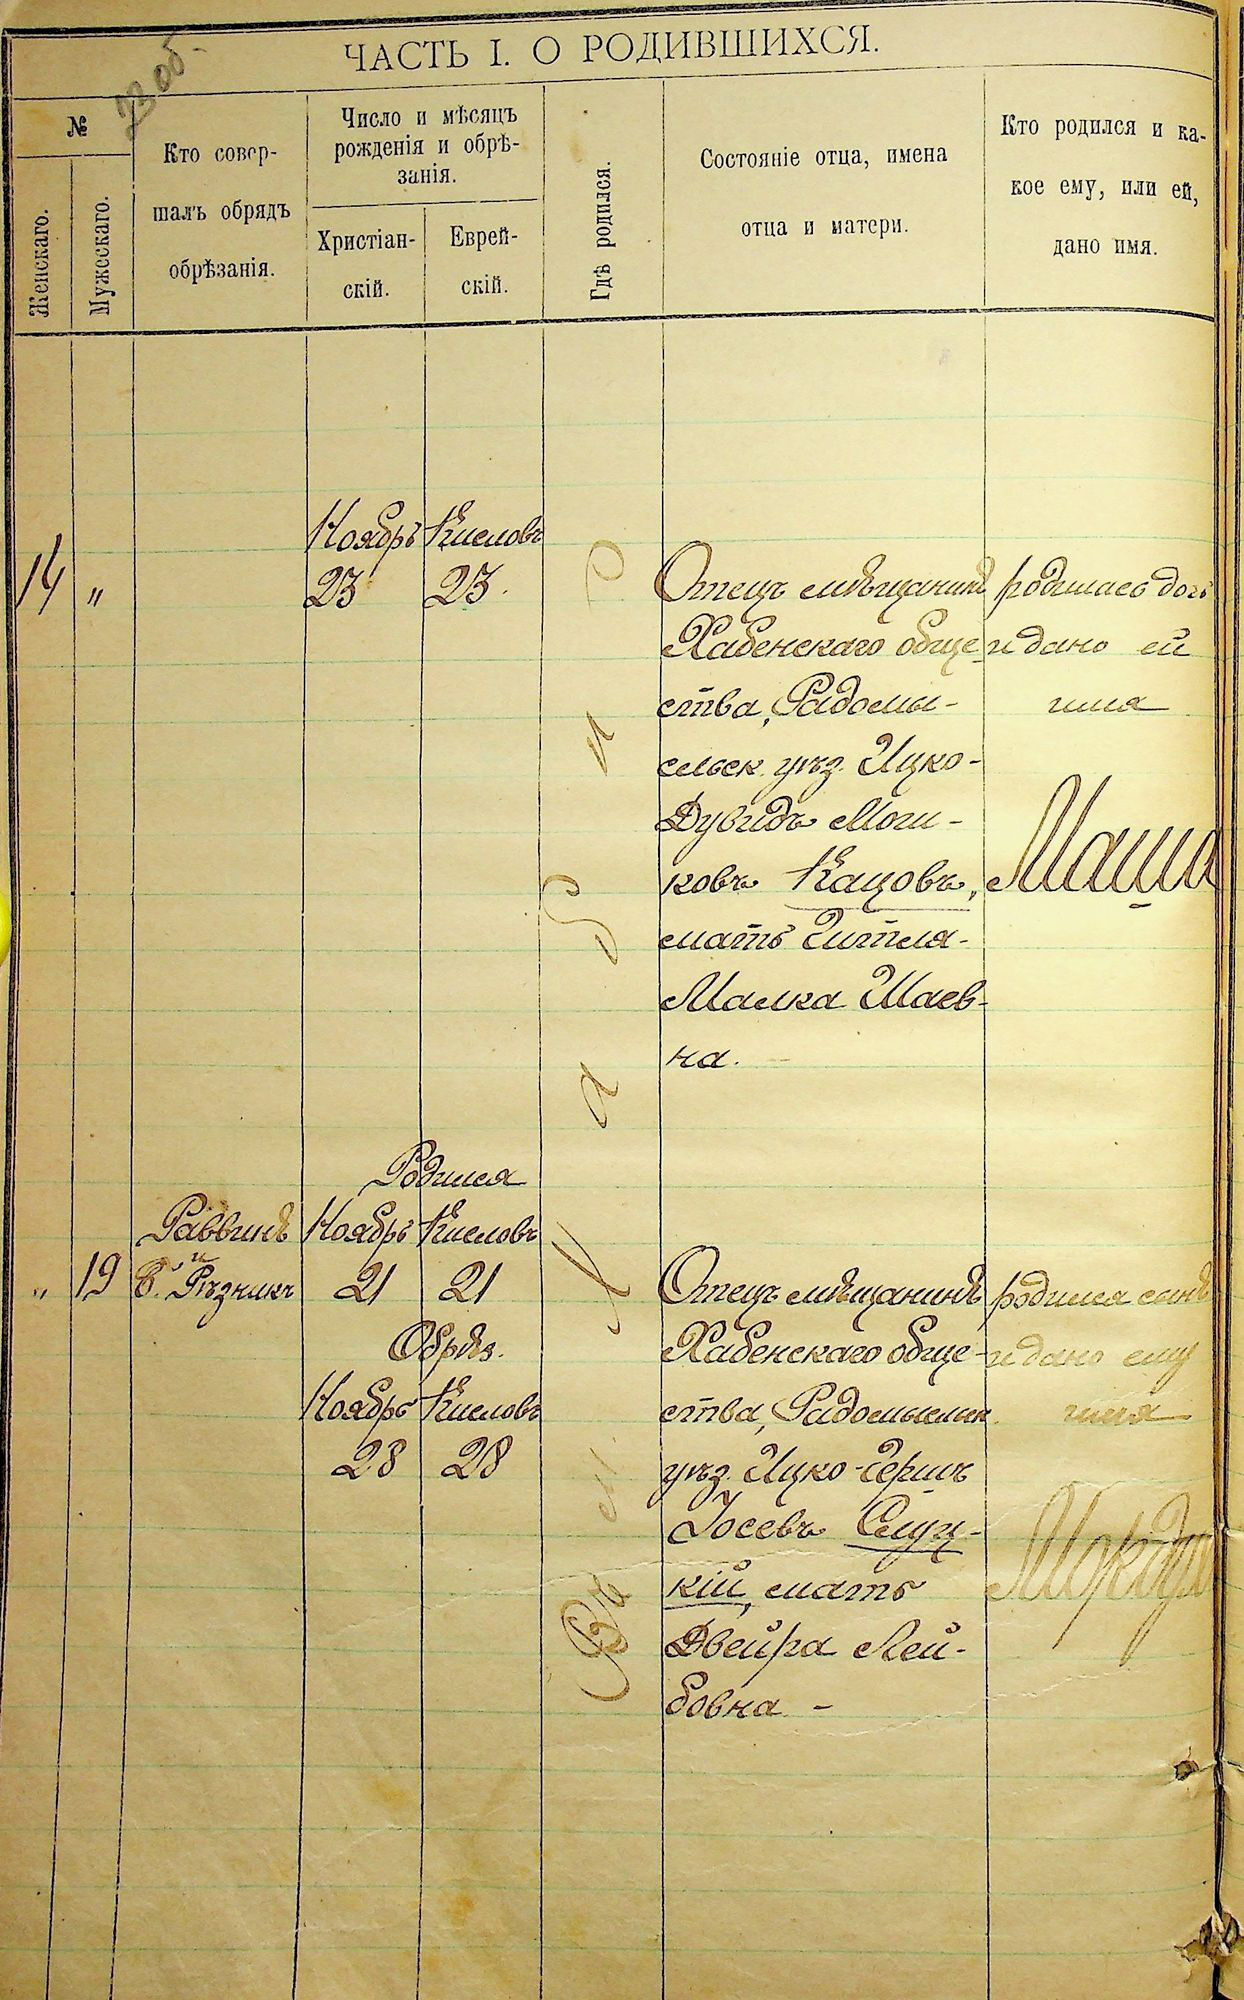 23 об.
ЧАСТЬ I. О РОДИВШИХСЯ.
№
Женскаго.
Мужескаго.
Кто совер-
шалъ обрядъ
обрѣзанія.
Число и мѣсяцъ
рожденія и обрѣ-
занія.
Христіан-
скій.
Еврей-
скій.
Гдѣ родился.
Состояніе отца, имена
отца и матери.
Кто родился и ка-
кое ему, или ей,
дано имя.
14 "
Ноябрь Кисловъ
23 23.
Отецъ мѣщанинъ
Хабенскаго обще-
ства, Радомы-
сльск. уѣз. Ицко-
Дувидъ Мош-
ковъ Кацовъ,
мать Гитля-
Малка Шаев-
на.
родилась дочь
и дано ей
имя
Маша
" 19
Раввинъ
и
Б. Рѣзникъ
Родился
Ноябрь Кисловъ
21 21
Обрѣз.
Ноябрь Кисловъ
28 28
Отецъ мѣщанинъ
Хабенскаго обще-
ства, Радомысльск.
уѣз. Ицко-Гершъ
Іосевъ Слуц-
кій, мать
Двейра Лей-
бовна -
родился сынъ
и дано ему
имя
Въ м. Хабн